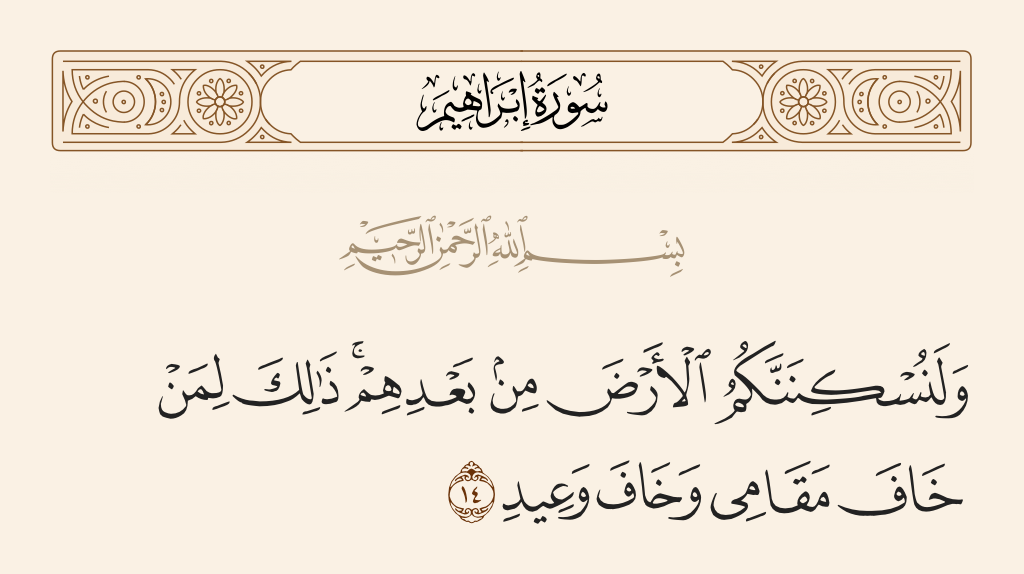 سُورَةُ إِبْرَاهِيمَ
بِسْمِ ٱللَّهِ ٱلرَّحْمَٰنِ ٱلرَّحِيمِ
وَلَنُسْكِنَنَّكُمُ ٱلْأَرْضَ مِنۢ بَعْدِهِمْ ۚ ذَٰلِكَ لِمَنْ
خَافَ مَقَامِى وَخَافَ وَعِيدِ ١٤